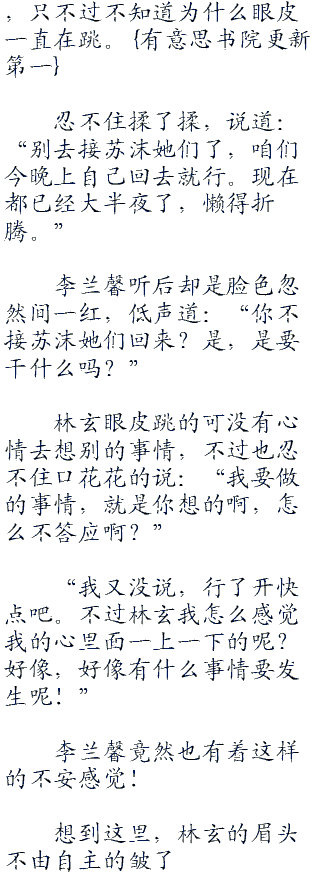 ，只不过不知道为什么眼皮
一直在跳。{有意思书院更新
第一}
忍不住揉了揉，说道：
“别去接苏沫她们了，咱们
今晚上自己回去就行。现在
都已经大半夜了，懒得折
腾。”
李兰馨听后却是脸色忽
然间一红，低声道：“你不
接苏沫她们回来？是，是要
干什么吗？”
林玄眼皮跳的可没有心
情去想别的事情，不过也忍
不住口花花的说：“我要做
的事情，就是你想的啊，怎
么不答应啊？”
“我又没说，行了开快
点吧。不过林玄我怎么感觉
我的心里面一上一下的呢？
好像，好像有什么事情要发
生呢！”
李兰馨竟然也有着这样
的不安感觉！
想到这里，林玄的眉头
不由自主的皱了